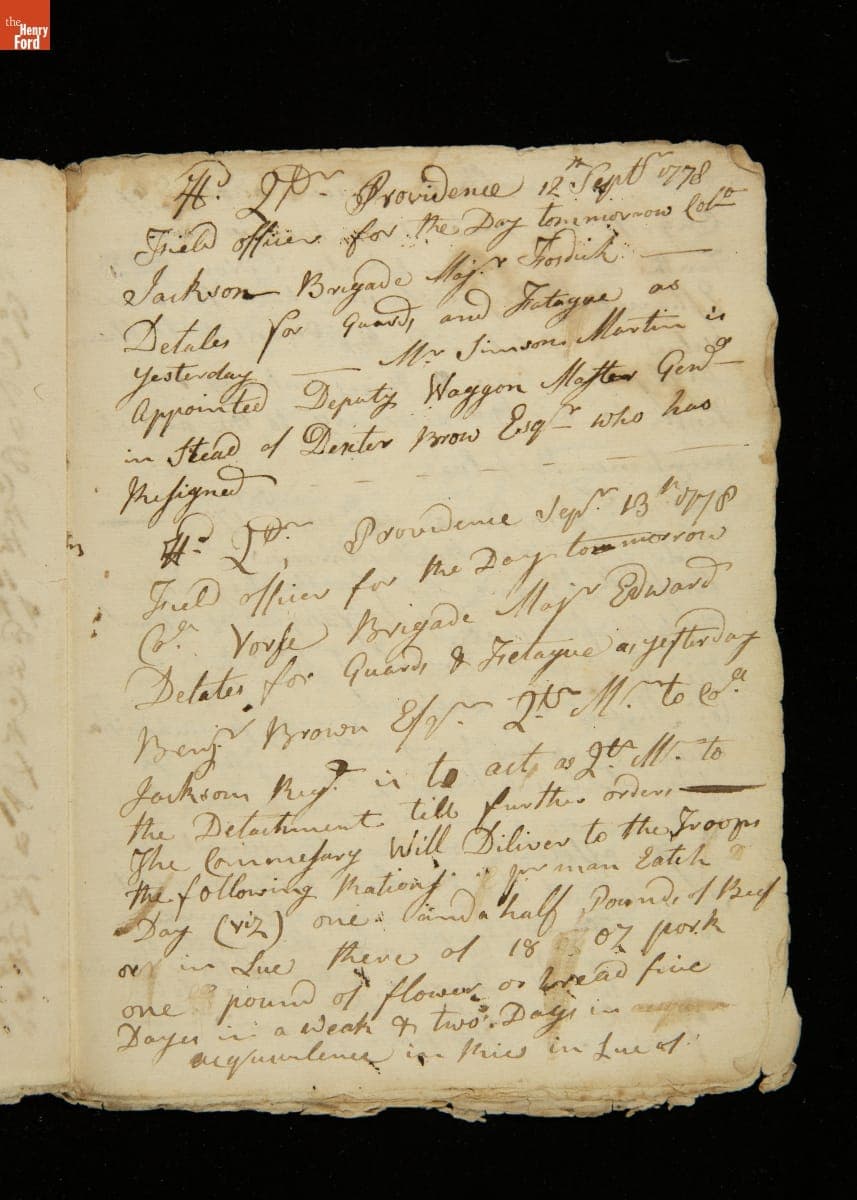 the
Henry
Ford
Hd. Qtrs. Providence 12th Septr 1778
Field officer for the Day tommorrow Colo
Jackson Brigade Majr. Fosdick —
Detales for Guards and Fatague as
yesterday — Mr Simson Martin is
Appointed Deputy Waggon Master Genl
in Stead of Dexter Brow Esqr who has
Resigned
Hd. Qtrs. Providence Sepr. 13th 1778
Field officer for the Day tommorrow
Col. Vorse Brigade Majr Edward
Detales for Guards & Fetague as yesterday
Benjr Brown Esqr. Qtr Mr. to Col.
Jackson Regt. is to act as Qtr Mr. to
the Detachment till further orders —
The Commesary Will Diliver to the Troops
the following Rations. per man Eatch
Day (viz) one and a half Pounds of Beef
or in Lue there of 18 oz pork
one pound of flower or bread five
Dayes in a weak & two Days in
aequivelence in Rice in Lue of